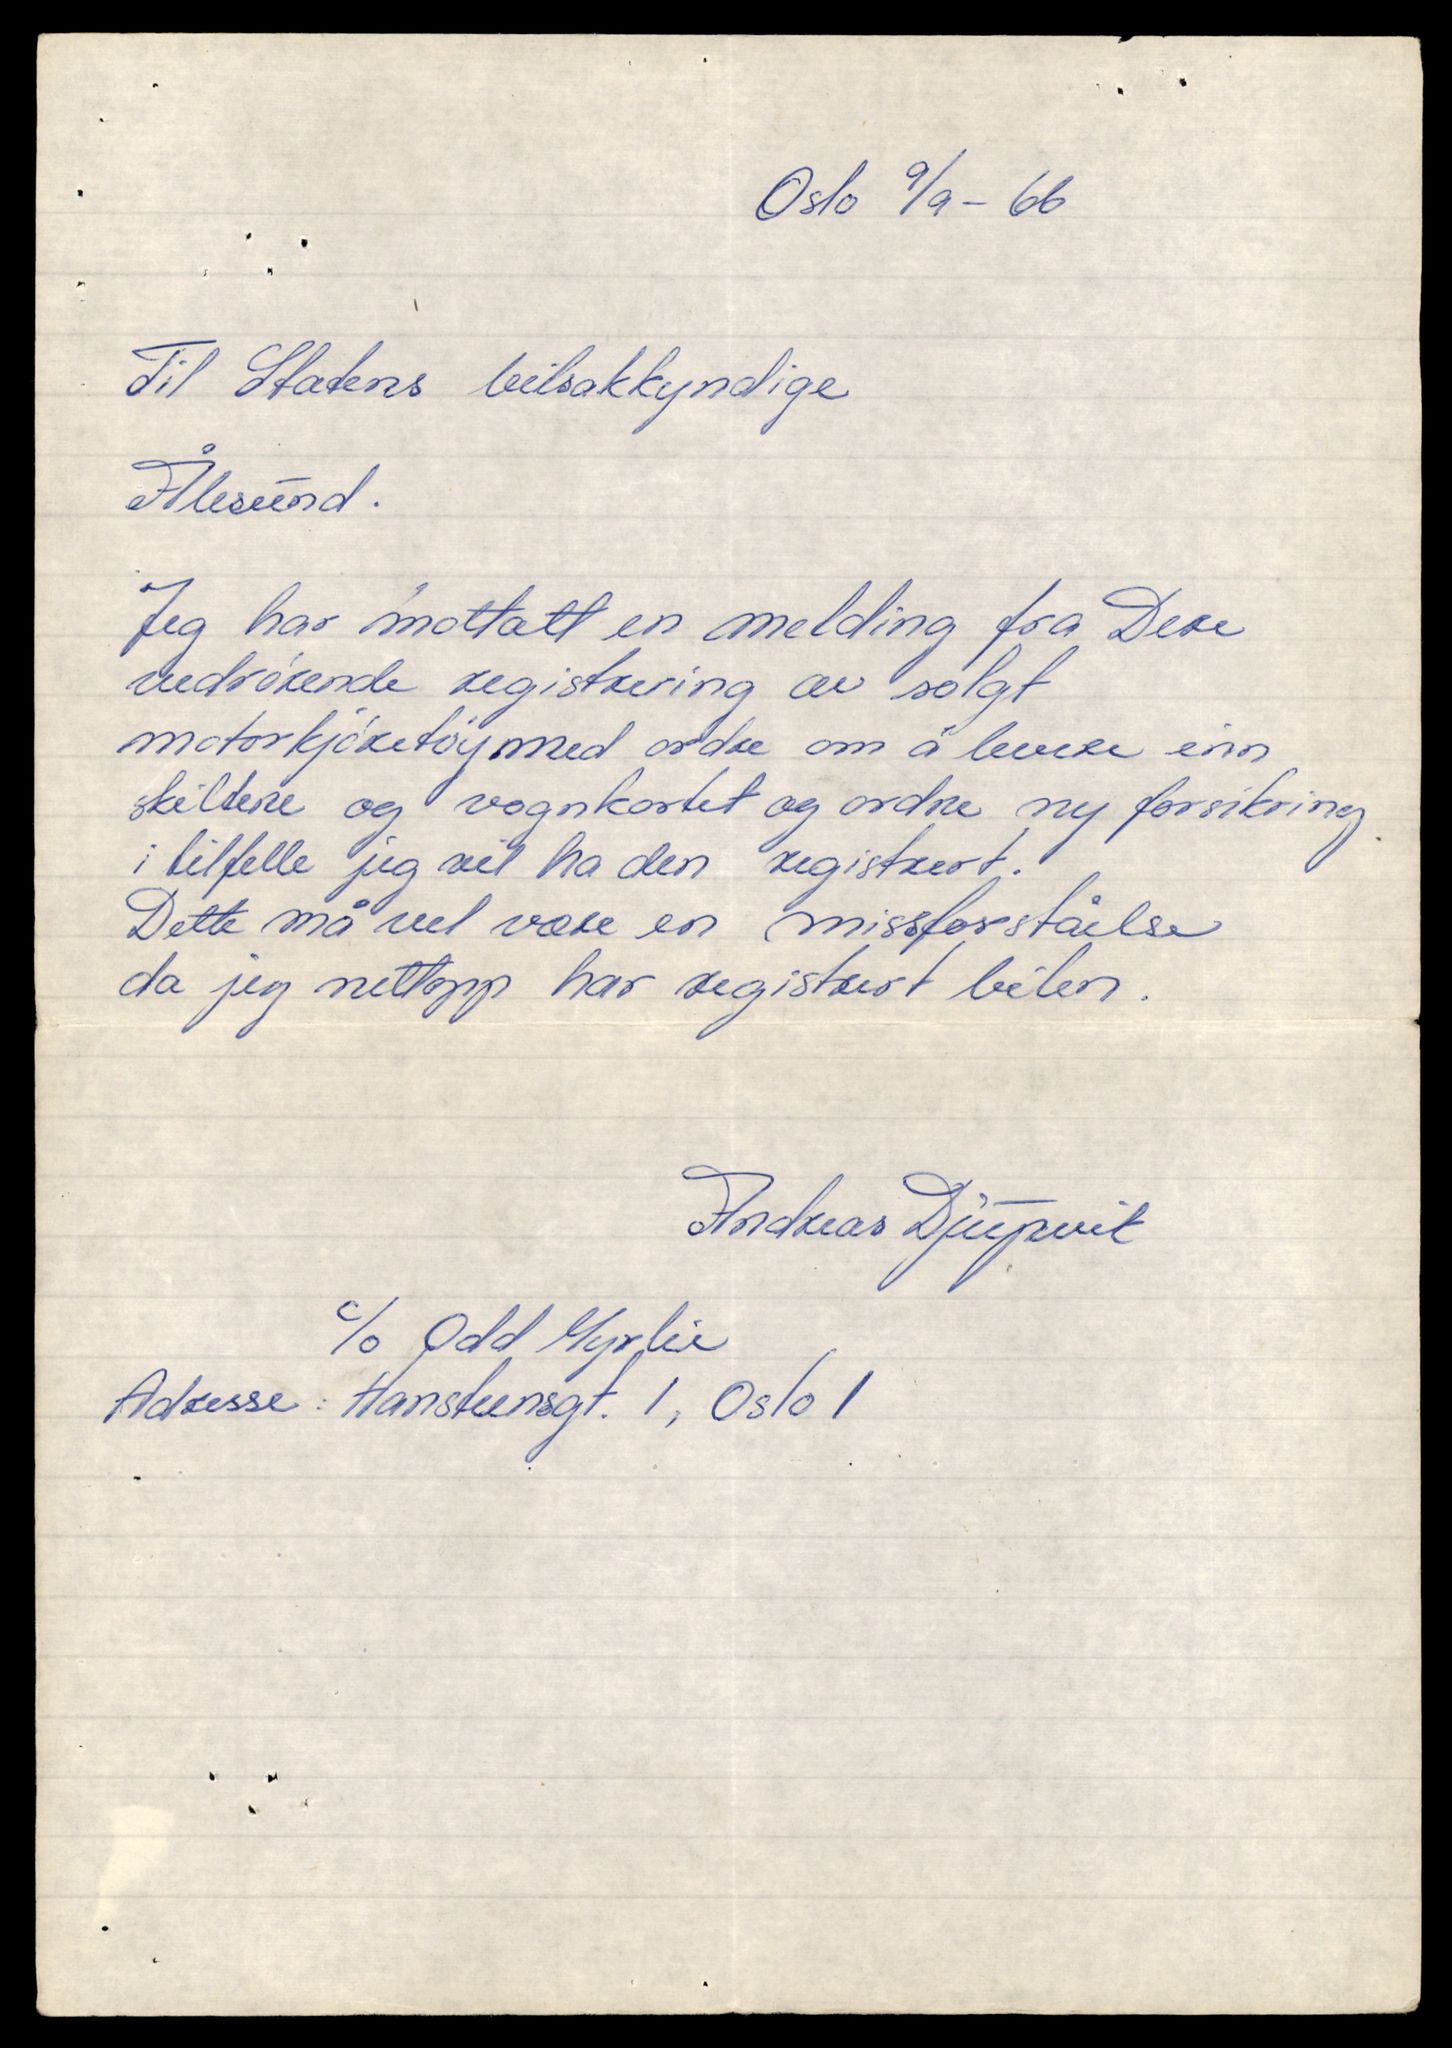 Oslo 9/9 - 66
Til Statens bilsakkyndige
Ålesund.
Jeg har mottatt en melding fra Dere
vedrörende registrering av solgt
motorkjöretöy med ordre om å levere inn
skiltene og vognkortet og ordne ny forsikring
i tilfelle jeg vil ha den registrert.
Dette må vel være en missforståelse
da jeg nettopp har registrert bilen.
Andreas Djupvik
c/o Odd Myrlie
Adresse: Hansteensgt. 1, Oslo 1